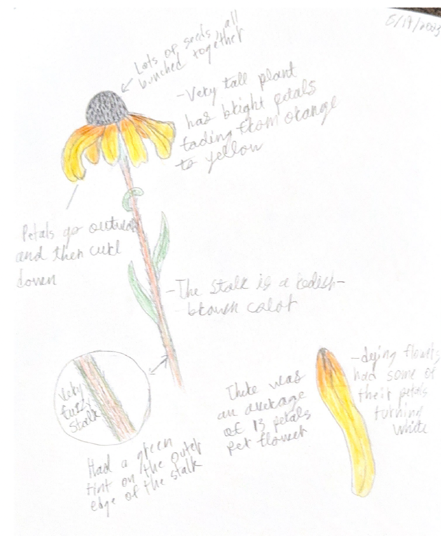 5/19/2023
Lots of seeds all
bunched together
-Very tall plant
has bright petals
fading from orange
to yellow
Petals go outward
and then curl
down
-The stalk is a redish-
brown color
Very
fuzzy
stalk
Had a green
tint on the outer
edge of the stalk
There was
an average
of 15 petals
per flower
-dying flowers
had some of
their petals
turning
white